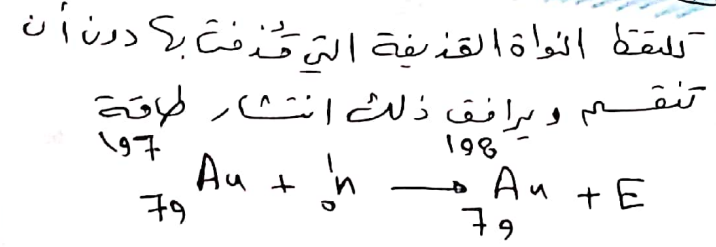 تلتقط النواة القذيفة التي قُذفت بها دون أن
تنقسم ويرافق ذلك انتشار طاقة
¹⁹⁷₇₉Au + ¹₀n → ¹⁹⁸₇₉Au + E